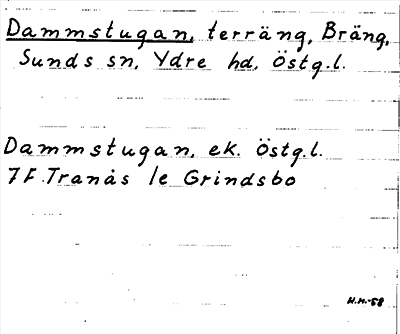 Dammstugan, terräng, Bräng,
Sunds sn, Ydre hd, Östg.l.
Dammstugan, ek. Östg.l.
7F Tranås 1e Grindsbo
H.H.-58